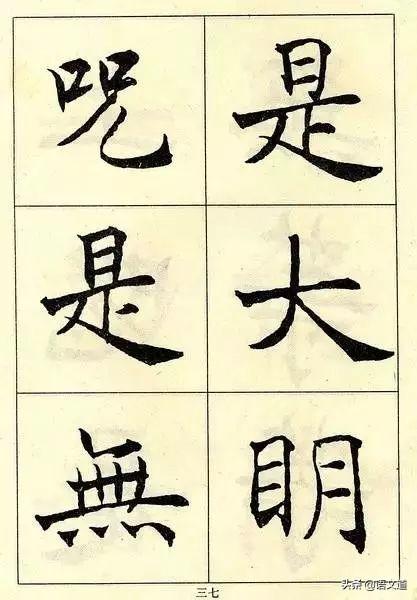 是大明
呪是無
三七
头条@语文道